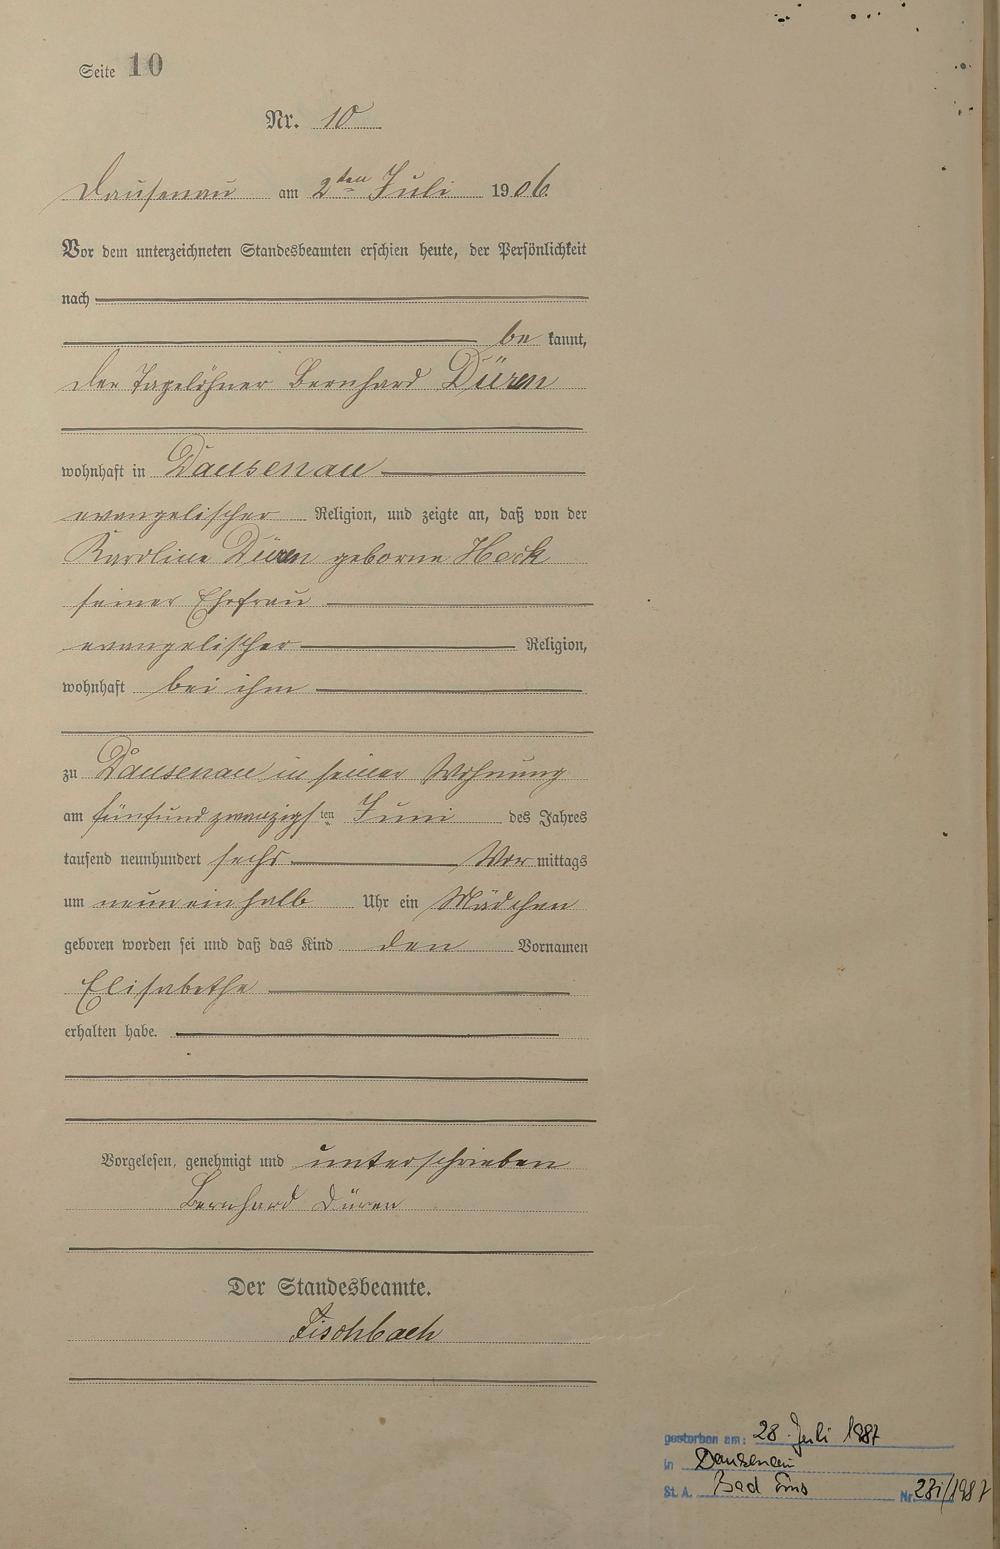 Seite 10
Nr. 10
Dausenau am 2ten Juli 1906.
Vor dem unterzeichneten Standesbeamten erschien heute, der Persönlichkeit
nach
be kannt,
der Tagelöhner Bernhard Düren
wohnhaft in Dausenau
evangelischer Religion, und zeigte an, daß von der
Karoline Düren geborne Heck
seiner Ehefrau
evangelischer Religion,
wohnhaft bei ihm
zu Dausenau in seiner Wohnung
am fünfundzwanzigsten Juni des Jahres
tausend neunhundert sechs Vor mittags
um neun ein halb Uhr ein Mädchen
geboren worden sei und daß das Kind den Vornamen
Elisabethe
erhalten habe.
Vorgelesen, genehmigt und unterschrieben
Bernhard Düren
Der Standesbeamte.
Fischbach
gestorben am: 28. Juli 1987
in Dausenau
St. A. Bad Ems Nr.